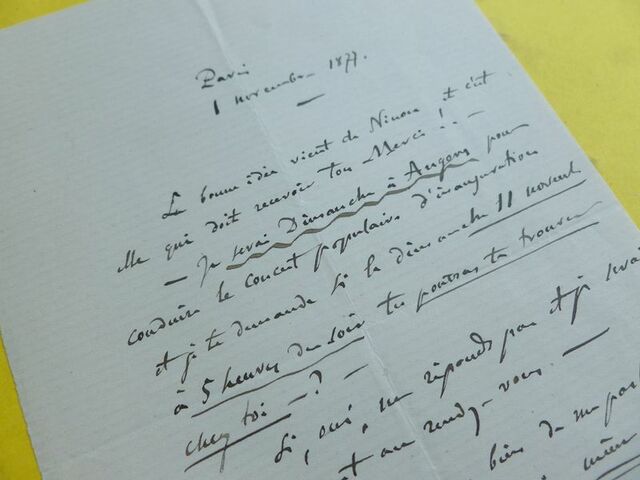 Paris
1 novembre 1877.
La bonne idée vient de Ninon et c'est
elle qui doit recevoir ton Merci! . . —
— Je serai Dimanche à Angers pour
conduire le concert populaire d'inauguration
et je te demande si le dimanche 11 novemb
à 5 heures du soir tu pourras te trouver
chez toi — ? —
Si, oui, ne réponds pas et je serai
au rendez-vous. —
bien de me
même